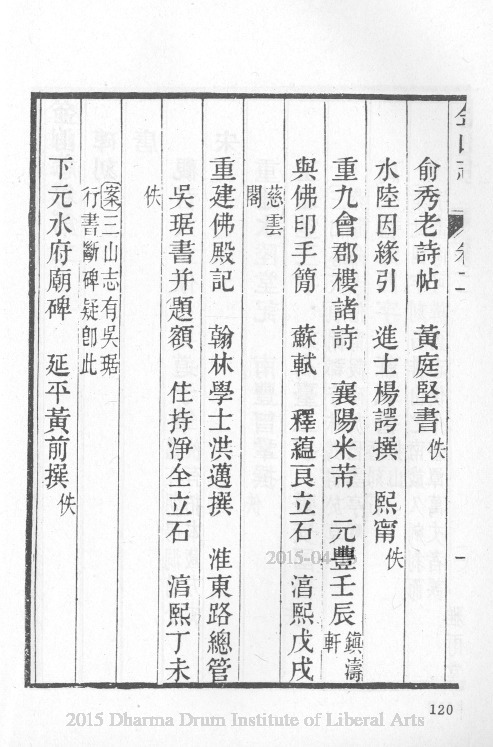 金山志 卷二 一
俞秀老詩帖 黃庭堅書 佚
水陸因緣引 進士楊諤撰 熙甯 佚
重九會郡樓諸詩 襄陽米芾 元豐壬辰 鎮濤軒
與佛印手簡 蘇軾 釋蘊良立石 湻熙戊戌
慈雲閣
重建佛殿記 翰林學士洪邁撰 淮東路總管
吳琚書并題額 住持净全立石 湻熙丁未
佚
案三山志有吳琚
行書斷碑疑卽此
下元水府廟碑 延平黃前撰 佚
120
2015-04-
2015 Dharma Drum Institute of Liberal Arts